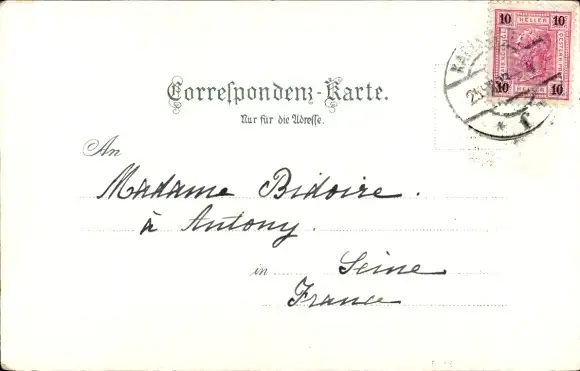 10 HELLER 10
10 HELLER 10
Correspondenz-Karte.
Nur für die Adresse.
An
Madame Bidoire.
à Antony.
in Seine
France